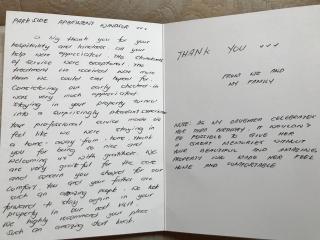 PARKSIDE APARTMENT WINDSOR ...
A big thank you for your
hospitality and kindness or your
help were appreciated. The standards
of service were exceptional. The
treatment we received was more
than we could ever hoped for.
Considering our early checked-in
was very much appreciated.
Staying in your property turned
into a surprisingly pleasant experience
Your professional service made us
feel like we were staying in
a home - away from - home. Thank
you for being so nice and
welcoming us with gratitude. We
are very grateful for the care
and concern you showed for our
comfort. You and your father are
such an amazing people. We look
forward to stay again in your
property in our next visit.
We highly recommend your place.
Such an amazing start back.
THANK YOU ...
FROM ME AND
MY FAMILY
NOTE: AS MY DAUGHTER CELEBRATED
HER 21ST BIRTHDAY, IT WOULDN'T
BE POSSIBLE TO GIVE HER
A GREAT MEMORIES WITHOUT
YOUR BEAUTIFUL AND AMAZING
PROPERTY WE MADE HER FEEL
HOME AND COMFORTABLE